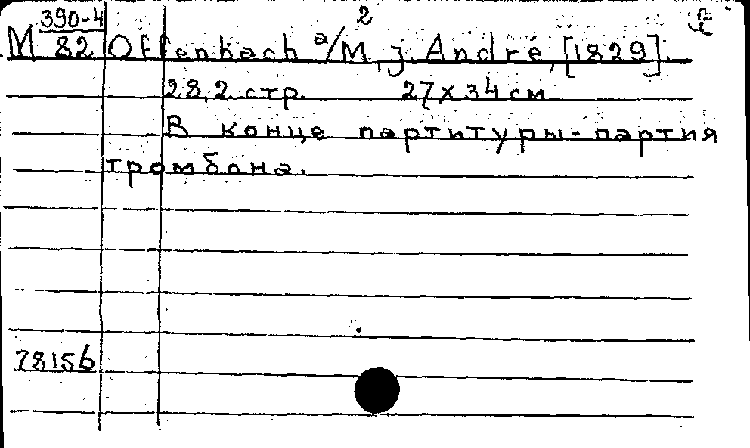 2
M 390-4/82 Offenbach a/M, J. André, [1829].
28, 2 стр. 27x34 см
В конце партитуры - партия
тромбона.
78156